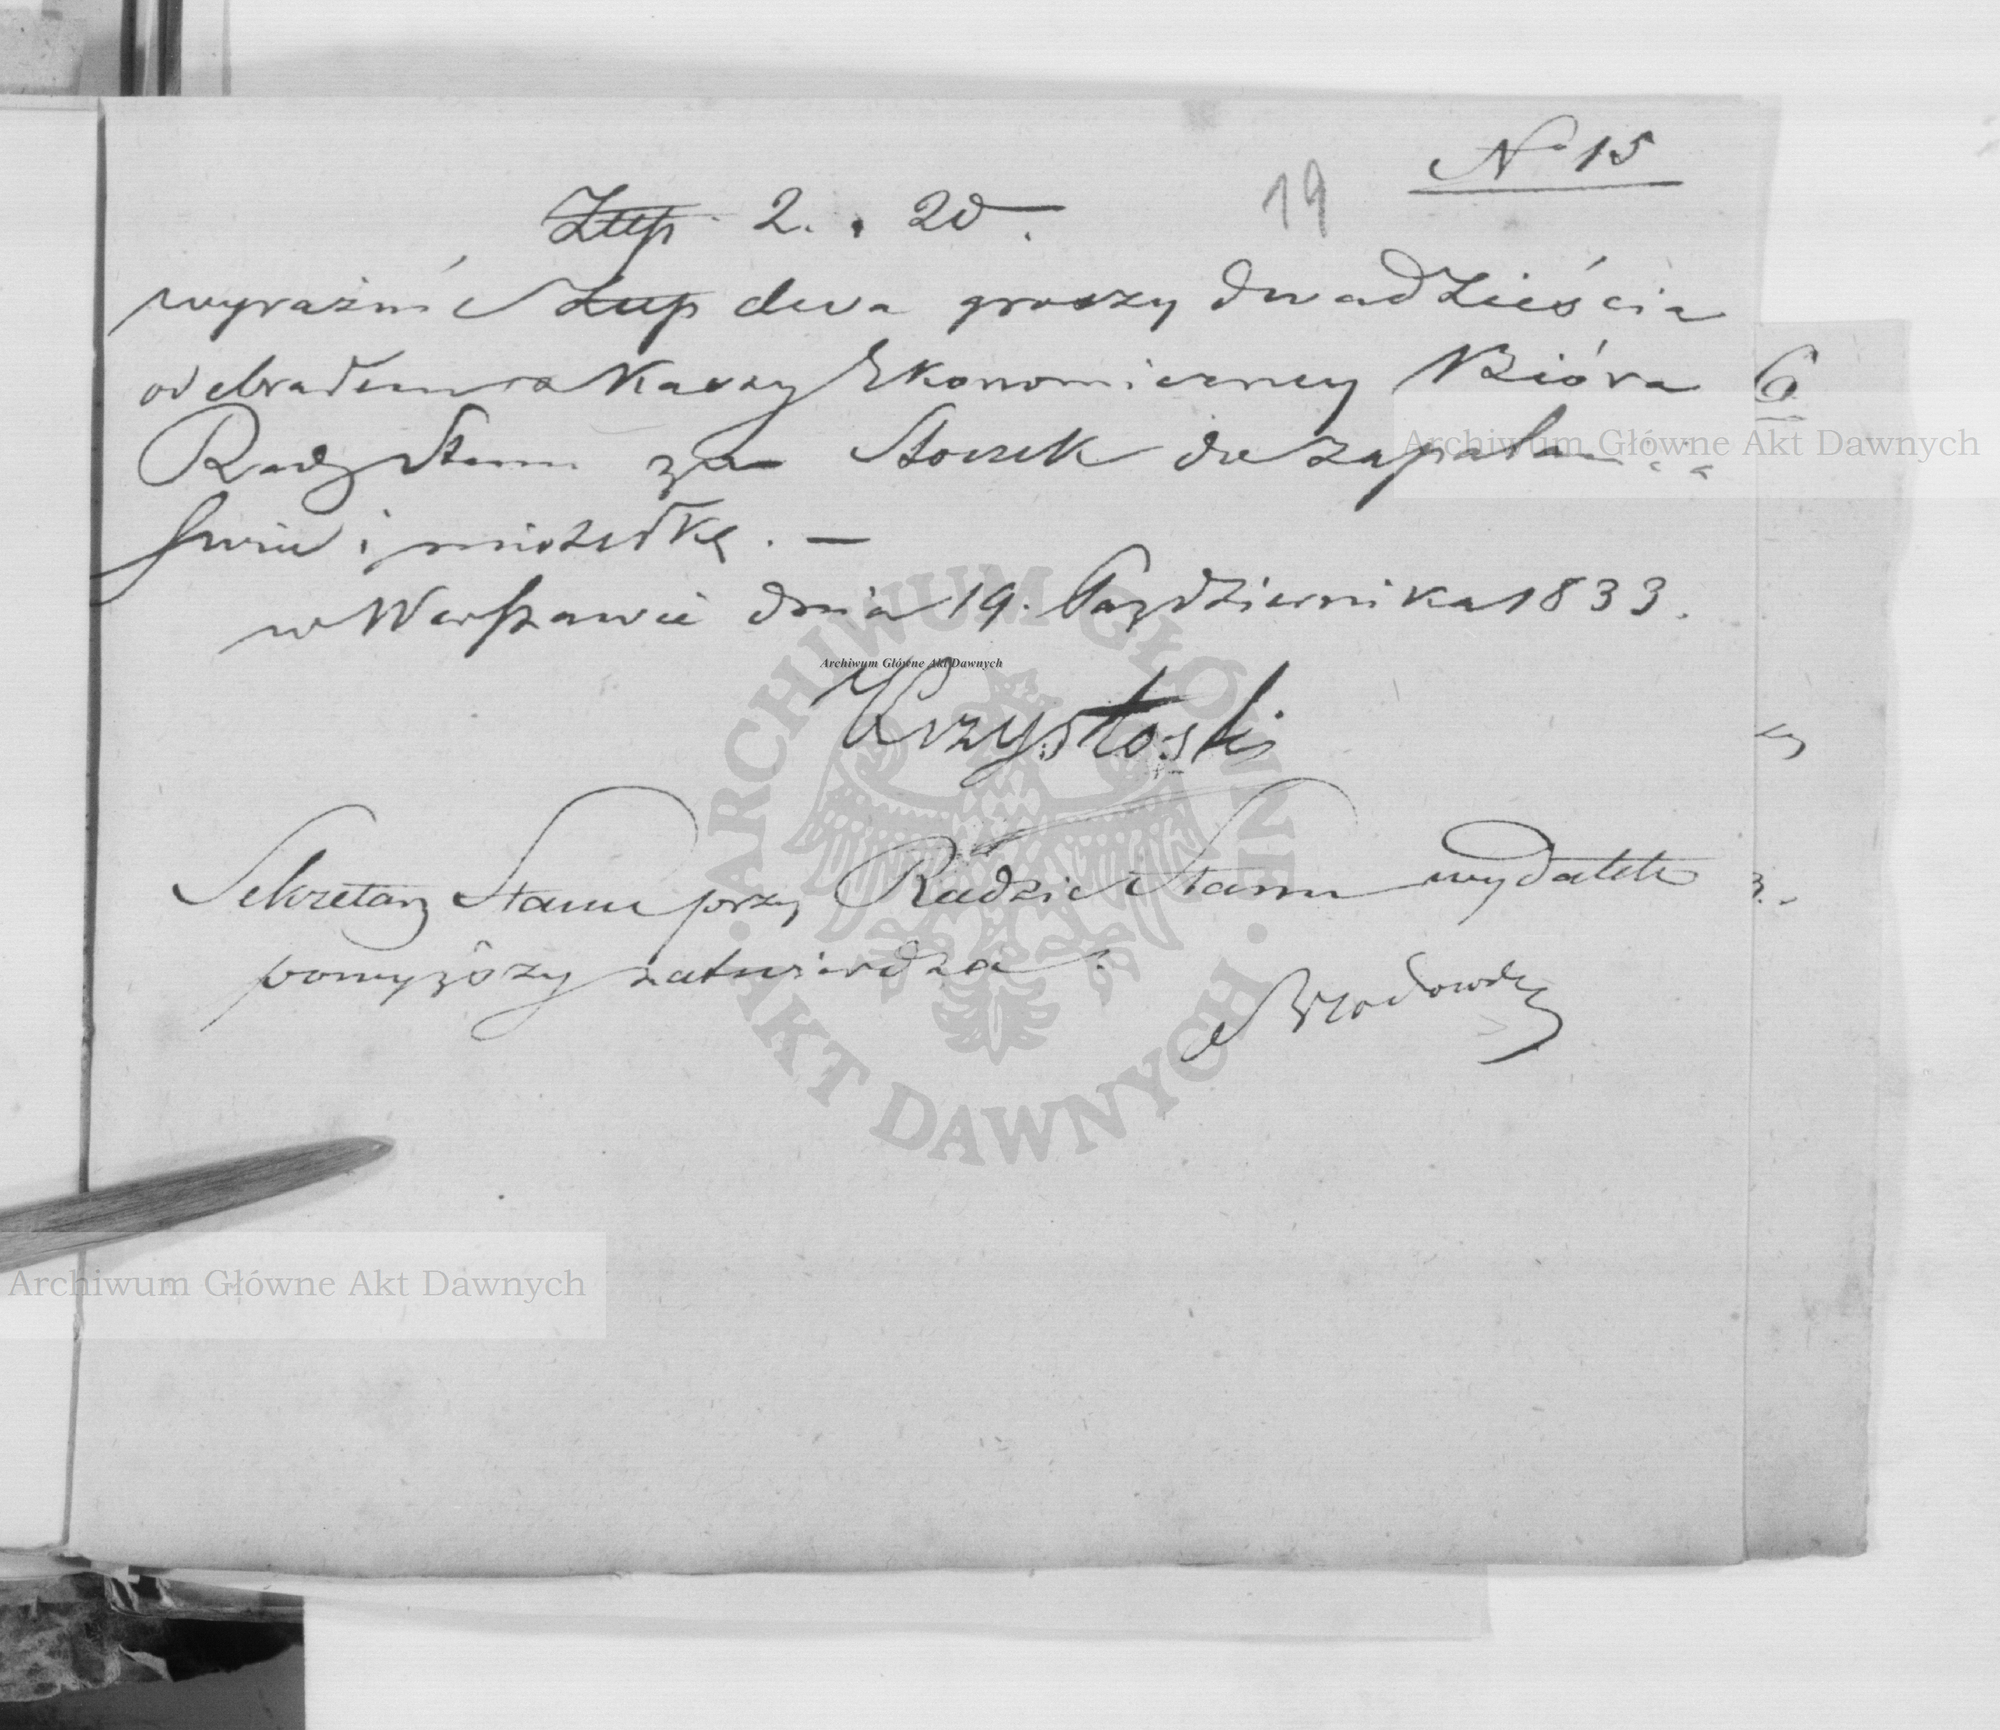 No 15
19
Złłp. 2. . 20.
wyraźnie Złłp dwa groszy dwadzieścia
odebrałem z Kassy Ekonomiczney Bióra
Rady Stanu za Stoczek do zapalania
świec i miotełkę. —
w Warszawie dnia 19. Października 1833.
Archiwum Główne Akt Dawnych
Krzystoski
Sekretarz Stanu przy Radzie Stanu wydatek
pomyższy zatwierdza.
ARCHIWUM GŁÓWNE AKT DAWNYCH
Archiwum Główne Akt Dawnych
Archiwum Główne Akt Dawnych